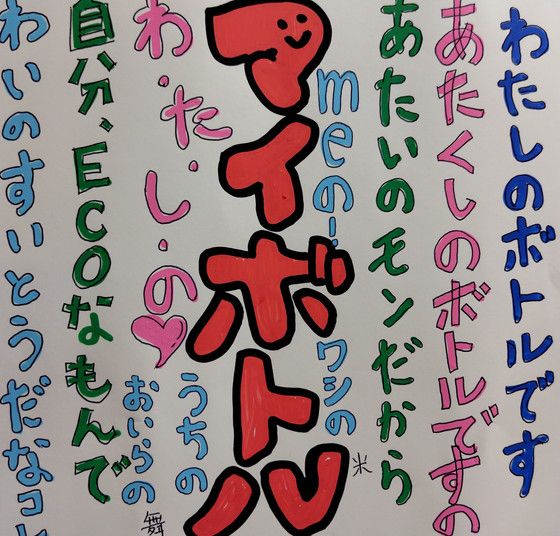 わたしのボトルです
あたくしのボトルですの
あたいのモンだから
meの!
ワシの
米
マイボトル
うちの
わ・た・し・の
おいらの
舞
自分、ECOなもんで
わいのすいとうだなコレ